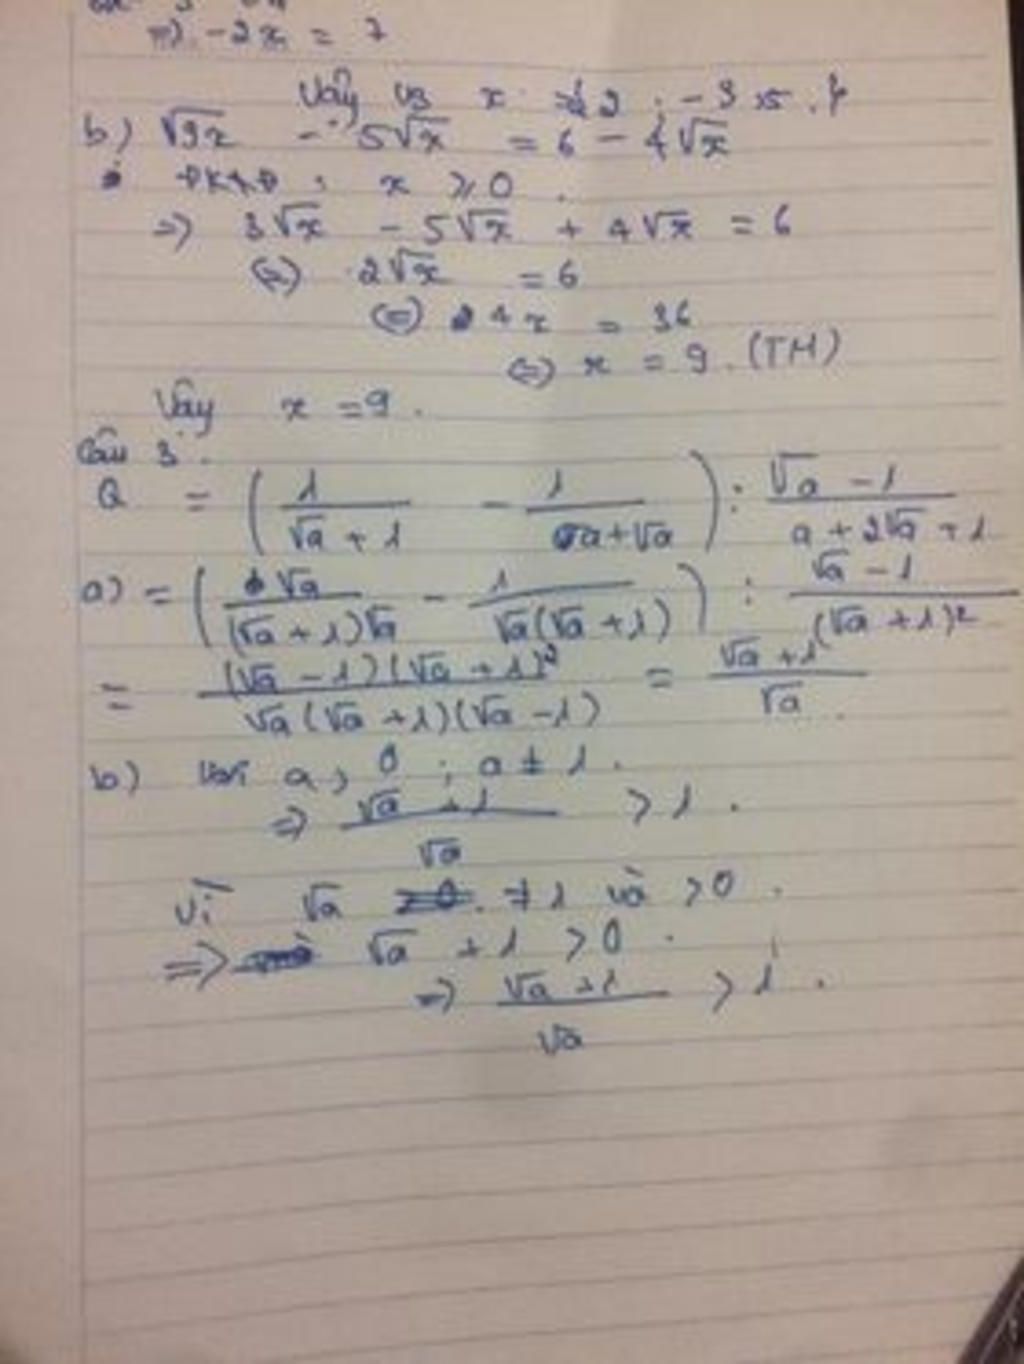 =) -2x = 7
Vậy x = 2 ; -3,5.
b) √9x - 5√x = 6 - 4√x
ĐKXĐ : x ≥ 0 .
=) 3√x - 5√x + 4√x = 6
(=) 2√x = 6
(=) 4x = 36
(=) x = 9 . (TM)
Vậy x = 9 .
Câu 3 .
Q = ( 1/(√a + 1) - 1/(a + √a) ) : (√a - 1)/(a + 2√a + 1)
a) = ( √a/((√a + 1)√a) - 1/(√a(√a + 1)) ) : (√a - 1)/(√a + 1)²
= (√a - 1)(√a + 1)²/(√a(√a + 1)(√a - 1)) = (√a + 1)/√a .
b) Với a > 0 ; a ≠ 1 .
=) (√a + 1)/√a > 1 .
Vì √a ≠ 1 và > 0 .
=> √a + 1 > 0 .
=) (√a + 1)/√a > 1 .